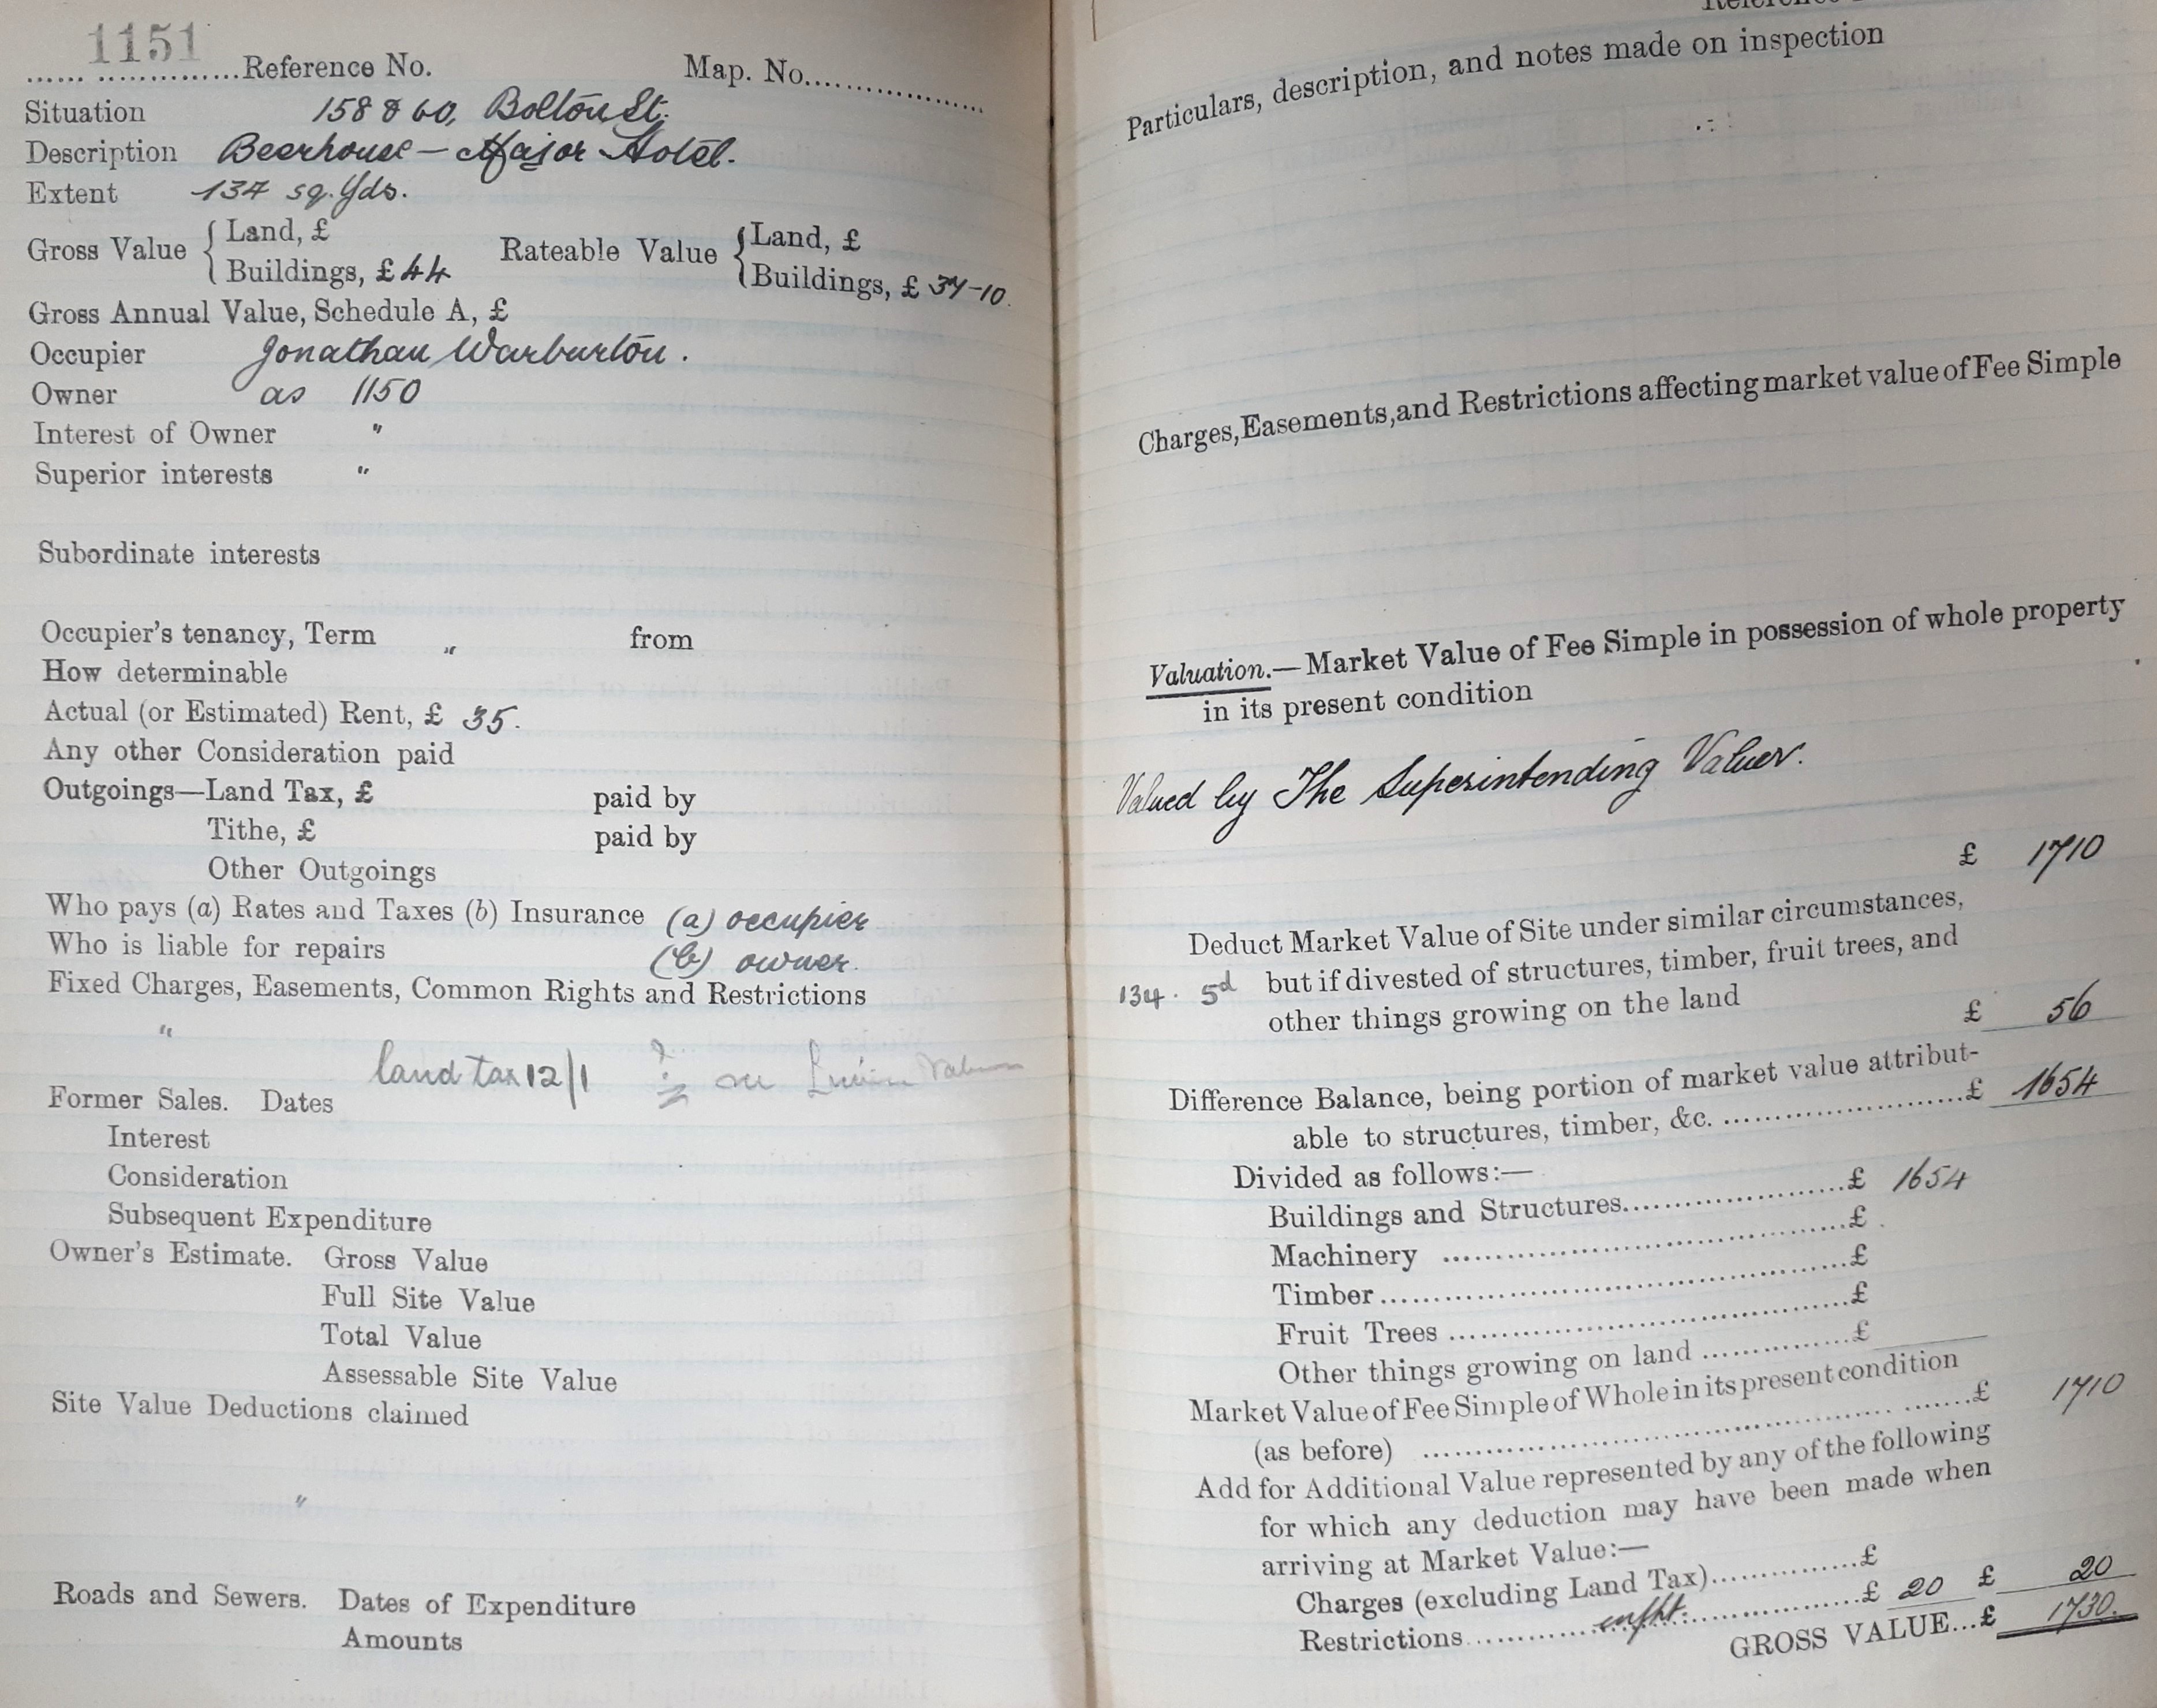 1151
Reference No. Map. No.
Situation 158 & 60, Bolton St.
Description Beerhouse — Major Hotel.
Extent 134 sq. Yds.
Gross Value { Land, £ Rateable Value { Land, £
Buildings, £ 44 Buildings, £ 34-10.
Gross Annual Value, Schedule A, £
Occupier Jonathan Warburton.
Owner as 1150
Interest of Owner "
Superior interests "
Subordinate interests
Occupier's tenancy, Term " from
How determinable
Actual (or Estimated) Rent, £ 35.
Any other Consideration paid
Outgoings—Land Tax, £ paid by
Tithe, £ paid by
Other Outgoings
Who pays (a) Rates and Taxes (b) Insurance (a) occupier
Who is liable for repairs (b) owner.
Fixed Charges, Easements, Common Rights and Restrictions
"
land tax 12/1 on
Former Sales. Dates
Interest
Consideration
Subsequent Expenditure
Owner's Estimate. Gross Value
Full Site Value
Total Value
Assessable Site Value
Site Value Deductions claimed
"
Roads and Sewers. Dates of Expenditure
Amounts
Particulars, description, and notes made on inspection
Charges, Easements, and Restrictions affecting market value of Fee Simple
Valuation.—Market Value of Fee Simple in possession of whole property
in its present condition
Valued by The Superintending Valuer.
£ 1710
Deduct Market Value of Site under similar circumstances,
134. 5d but if divested of structures, timber, fruit trees, and
other things growing on the land £ 56
Difference Balance, being portion of market value attribut-
able to structures, timber, &c. £ 1654
Divided as follows:—
Buildings and Structures £ 1654
Machinery £
Timber £
Fruit Trees £
Other things growing on land £
Market Value of Fee Simple of Whole in its present condition
(as before) £ 1710
Add for Additional Value represented by any of the following
for which any deduction may have been made when
arriving at Market Value:—
Charges (excluding Land Tax) £
Restrictions £ 20 £ 20
GROSS VALUE...£ 1730.